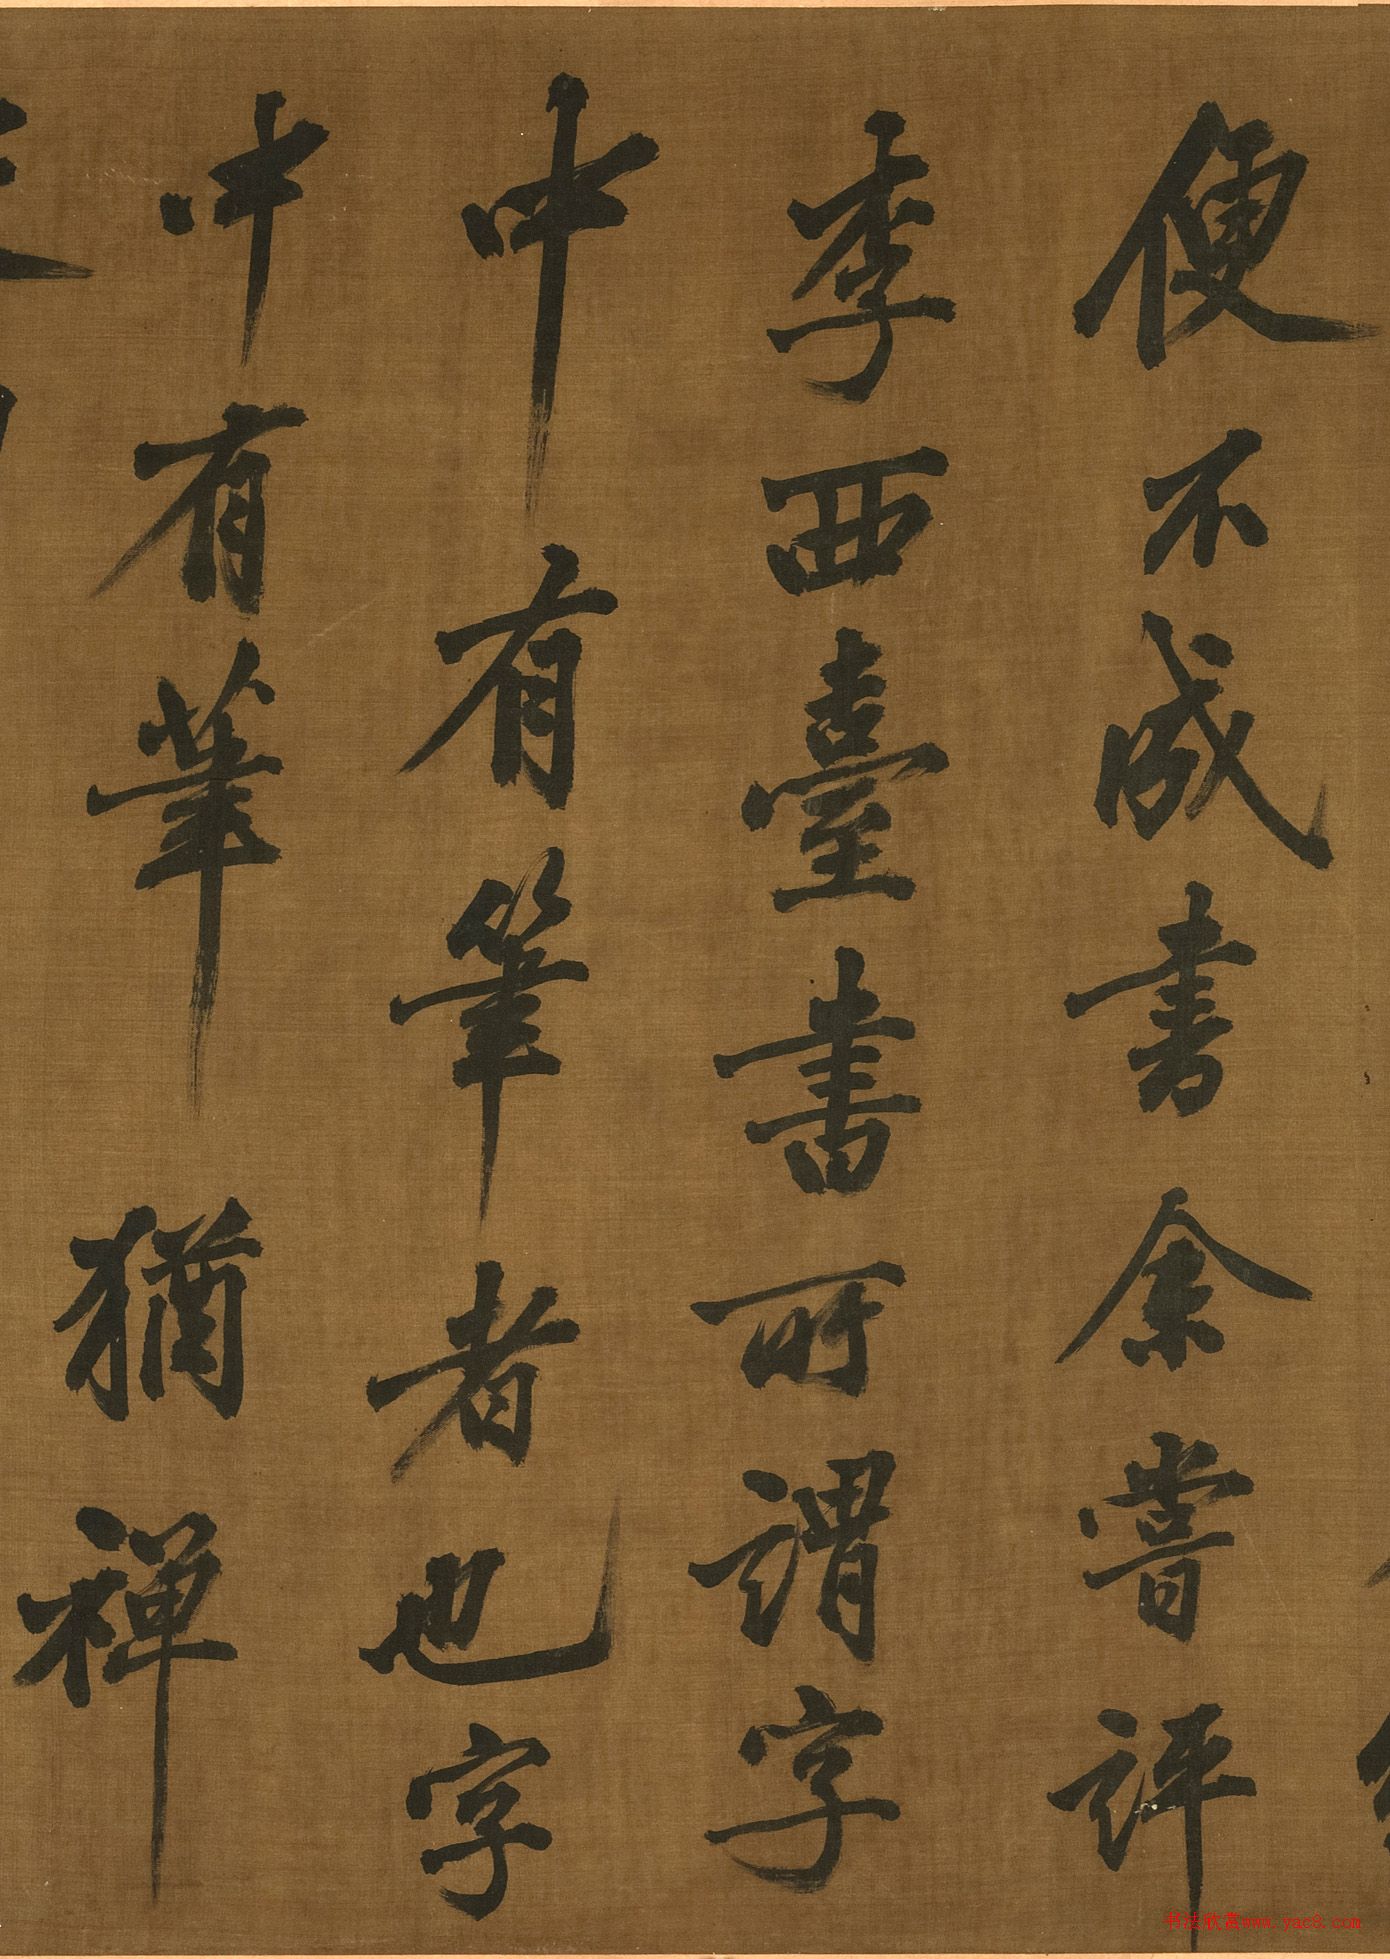 便不成书余嘗評
李西臺書所謂字
中有筆者也字
中有筆猶禪
书法欣赏www.yac8.com